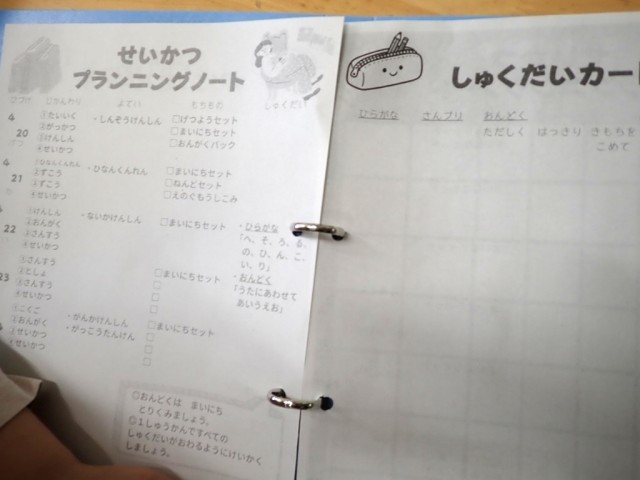 せいかつ
プランニングノート
ひづけ じかんわり よてい もちもの しゅくだい
4
20
①たいいく
②がっかつ
③けんしん
④せいかつ
・しんぞうけんしん
□げつようセット
□まいにちセット
□おんがくバック
4
21
①ひなんくんれん
②ずこう
③ずこう
④せいかつ
・ひなんくんれん
□まいにちセット
□ねんどセット
□えのぐもうしこみ
22
①けんしん
②おんがく
③さんすう
④せいかつ
・ないかけんしん
□まいにちセット
・ひらがな
「へ、そ、ろ、る、
の、ひ、ん、こ、
い、り」
23
①さんすう
②としょ
③さんすう
④せいかつ
□まいにちセット
□
□
□
・おんどく
「うたにあわせて
あいうえお」
①こくご
②おんがく
③せいかつ
④せいかつ
・がんかけんしん
・がっこうたんけん
□まいにちセット
□
□
□
◎おんどくは まいにち
とりくみましょう。
◎1しゅうかんですべての
しゅくだいがおわるようにけいかく
しましょう。
しゅくだいカー
ひらがな さんプリ おんどく
ただしく はっきり きもちを
こめて